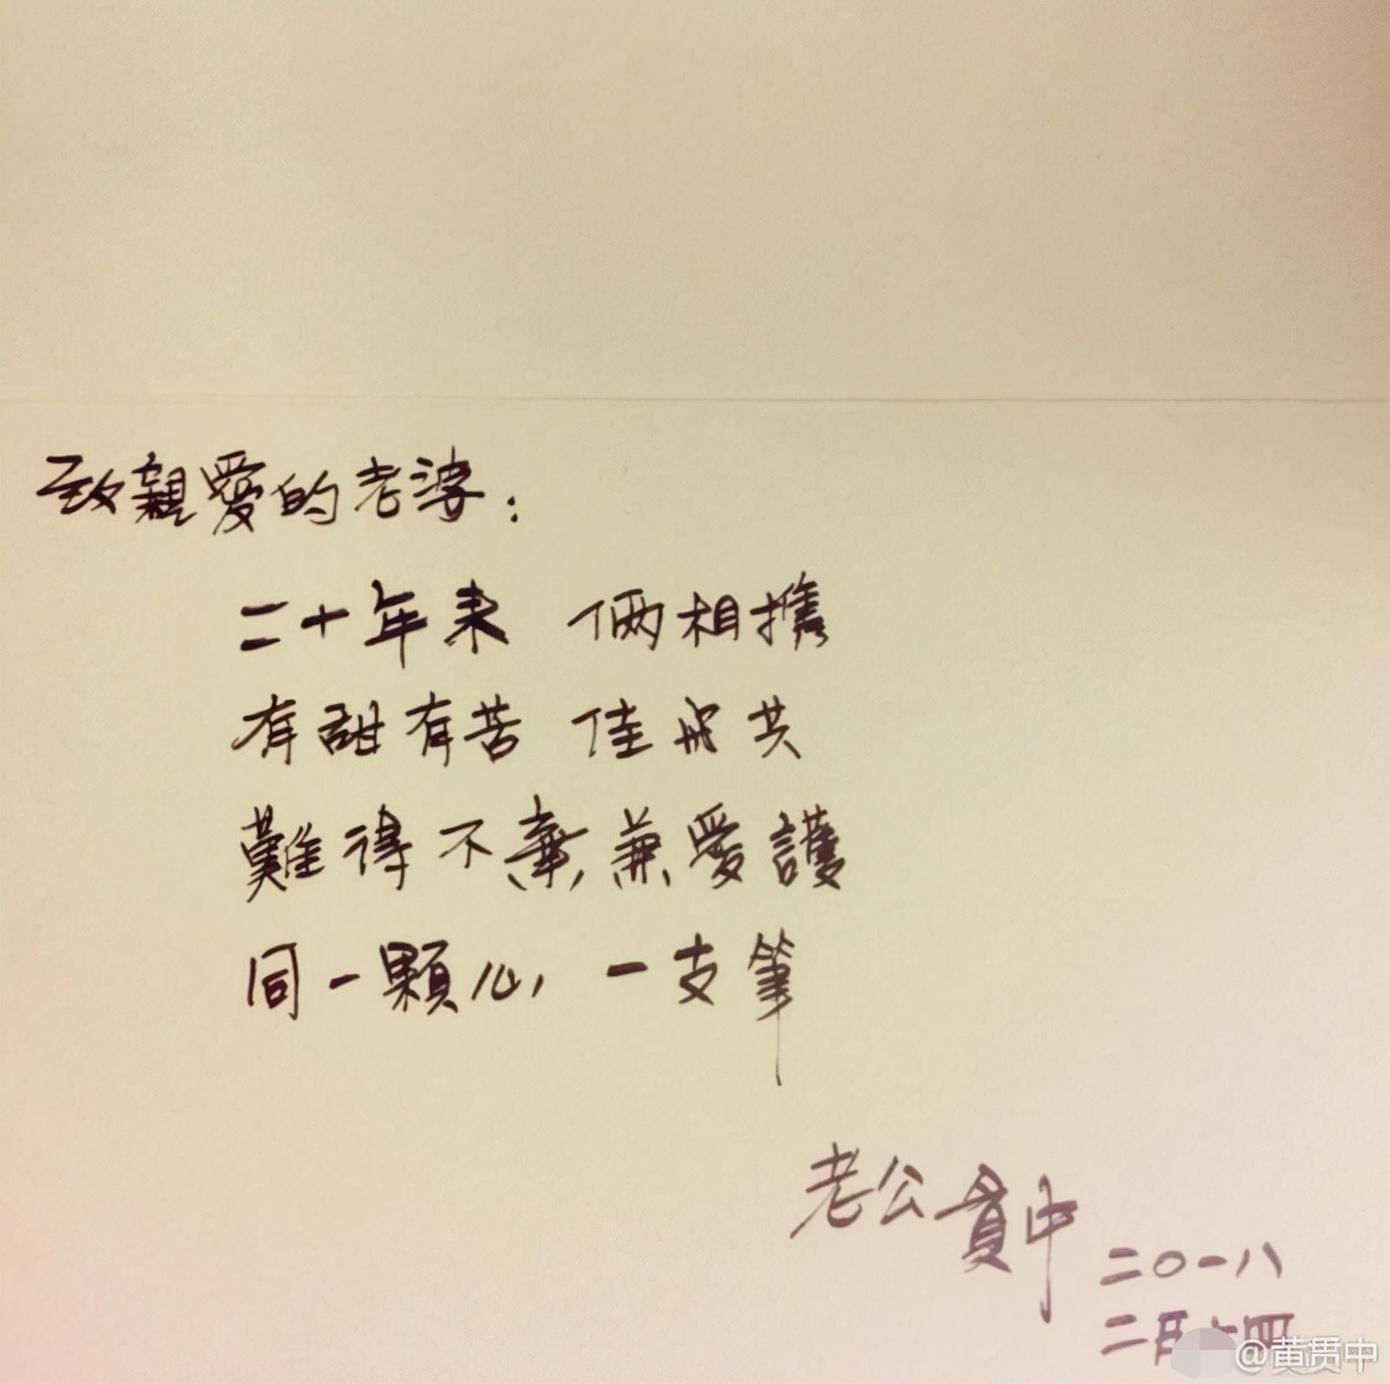 致親愛的老婆：
二十年来 倆相攜
有甜有苦 佳 共
難得不棄兼愛護
同一顆心 一支筆
老公貫中
二〇一八
二月十四
@黄贯中